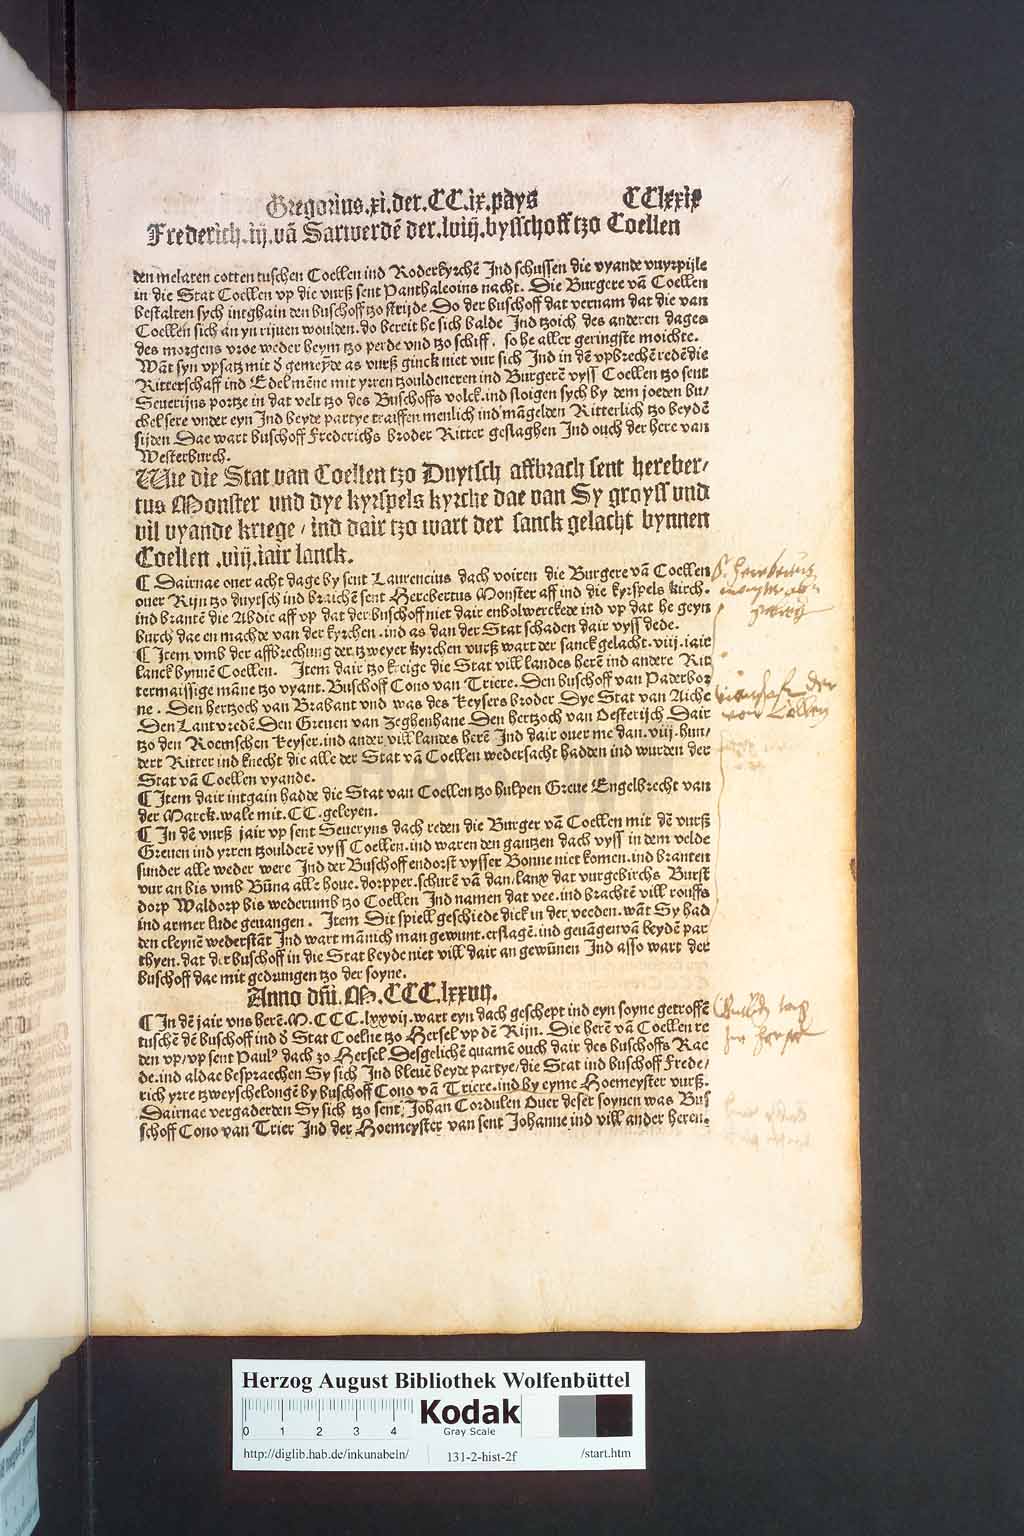 Gregorius.xi.der.CC.ix.pays CClxxix
Frederich.iij.vā Sarwerdē der.lviij.bysschoff tzo Coellen
den melaten cotten tuschen Coellen ind Roderkyrchē Ind schussen die vyande vuyrpijle
in die Stat Coellen vp die vurß sent Panthaleoins nacht. Die Burgere vā Coellen
bestalten sych intghain den buschoff tzo strijde Do der buschoff dat vernam dat die van
Coellen sich an yn rijuen woulden.do bereit he sich balde Ind tzoich des anderen dages
des morgens vroe weder heym tzo perde vnd tzo schiff. so he aller geringste moichte.
Wāt syn vpsatz mit d̄ gemeyde as vurß ginck niet vur sich Ind in dē vpbrechē redē die
Ritterschaff ind Edelmēne mit yrren tzouldeneren ind Burgerē vyss Coellen tzo sent
Seuerijns portze in dat velt tzo des Buschoffs volck.ind sloigen sych by dem joeden bu/
chel sere vnder eyn Ind beyde partye traiffen menlich ind māgelden Ritterlich tzo beydē
sijden Dae wart buschoff Frederichs broder Ritter geslaghen Ind ouch der here van
Westerburch.
Wie die Stat van Coellen tzo Duytsch affbrach sent hereber/
tus Monster vnd dye kyrspels kyrche dae van Sy groyss vnd
vil vyande kriege / ind dair tzo wart der sanck gelacht bynnen
Coellen .viij.iair lanck.
¶ Dairnae ouer acht dage by sent Laurencius dach voiren die Burgere vā Coellen
ouer Rijn tzo duytsch ind braichē sent Herebertus Monster aff ind die kyrspels kirch.
ind brantē die Abdie aff vp dat der buschoff niet dair enbolwerckede ind vp dat he geyn
burch dae en machde van der kyrchen.ind as dan der Stat schaden dair vyss dede.
¶ Item vmb der affbrechung der tzweyer kyrchen vurß wart der sanck gelacht.viij.iair
lanck bynnē Coellen. Item dair tzo kreige die Stat vill landes herē ind andere Rit
termaissige māne tzo vyant. Buschoff Cono van Triere. Den buschoff van Paderbor
ne. Den hertzoch van Brabant vnd was des keysers broder Dye Stat van Aiche
Den Lantvredē. Den Greuen van Zeghenhane Den hertzoch van Oesterijch Dair
tzo den Roemschen keyser.ind ander vill landes herē Ind dair ouer me dan.viij.hun/
dert Ritter ind knecht die alle der Stat vā Coellen wedersacht hadden ind wurden der
Stat vā Coellen vyande.
¶ Item dair intgain hadde die Stat van Coellen tzo hulpen Greue Engelbrecht van
der Marck.wale mit.CC.geleyen.
¶ In dē vurß jair vp sent Seueryns dach reden die Burger vā Coellen mit dē vurß
Greuen ind yrren tzoulderē vyss Coellen.ind waren den gantzen dach vyss in dem velde
sunder alle weder were Ind der Buschoff endorst vysser Bonne niet komen.ind branten
vur an bis vmb Būna alle houe.dorpper.schurē vā dan/lanx dat vurgebirchs Burst
dorp Waldorp bis wederumb tzo Coellen Ind namen dat vee.ind brachtē vill rouffs
ind armer lude geuangen. Item Dit spiell geschiede dick in der veeden.wāt Sy had
den cleynē wederstāt Ind wart mānich man gewunt.erslagē.ind geuāgen vā beydē par
thyen.dat der buschoff in die Stat beyde niet vill dair an gewūnen Ind asso wart der
buschoff dae mit gedrungen tzo der soyne.
Anno dñi.M.CCC.lxxvij.
¶ In dē jair vns herē.M.CCC.lxxvij.wart eyn dach geschept ind eyn soyne getroffē
tuschē dē buschoff ind d̄ Stat Coelne tzo Hersel vp dē Rijn. Die herē vā Coellen re
den vp/vp sent Paul⁹ dach zo Hersel. Desgelichē quamē ouch dair des buschoffs Rae
de.ind aldae bespraechen Sy sich Ind bleuē beyde partye/die Stat ind buschoff Frede/
rich yrre tzweyschelongē by buschoff Cono vā Triere.ind by eyme Hoemeyster vurß.
Dairnae vergaderden Sy sich tzo sent Johan Cordulen Ouer deser soynen was Bus
schoff Cono van Trier Ind der Hoemeyster van sent Johanne ind vill ander heren.
Herzog August Bibliothek Wolfenbüttel
0 1 2 3 4
Kodak
Gray Scale
http://diglib.hab.de/inkunabeln/ 131-2-hist-2f /start.htm